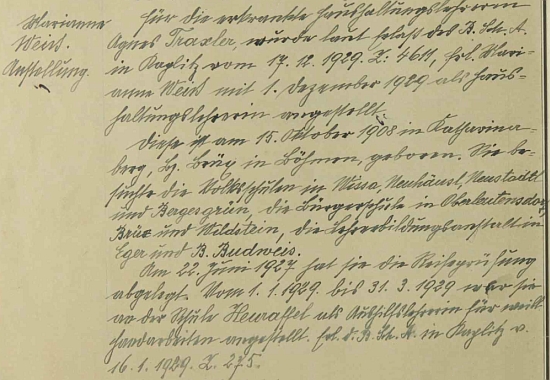 Marianne
Weis.
Anstellung.
Für die erkrankte Haushaltungslehrerin
Agnes Traxler, wurde laut Erlaß des B. Sch. A.
in Kaplitz vom 17. 12. 1929. Z: 4611, Frl. Mari-
anne Weis mit 1. Dezember 1929 als Haus-
haltungslehrerin angestellt.
Diese ist am 15. Oktober 1908 in Katharina-
berg, Bz. Brüx in Böhmen, geboren. Sie be-
suchte die Volksschulen in Wissa, Neuhäusl, Neustadtl
und Bergesgrün, die Bürgerschule in Oberleutensdorf,
Brüx und Wildstein, die Lehrerbildungsanstalt in
Eger und B. Budweis.
Am 22. Juni 1927 hat sie die Reifeprüfung
abgelegt. Vom 1. 1. 1929. bis 31. 3. 1929 war sie
an der Schule Heuraffel als Aushilfslehrerin für weibl.
Handarbeiten angestellt. Erl. d. B. Sch. A. in Kaplitz v.
16. 1. 1929. Z. 275.